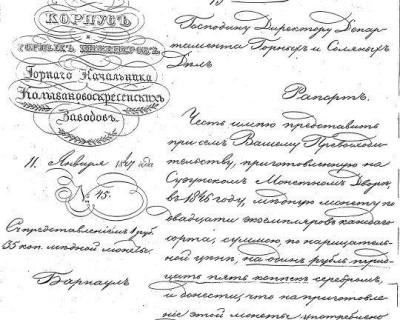 КОРПУСЪ
ГОРНЫХЪ ИНЖЕНЕРОВЪ
Горнаго Начальника
Колывановоскресенскихъ
Заводовъ.
11. Января 1847 года
№ 45.
Съ представленіемъ 1 руб.
35 коп. мѣдной монеты.
Барнаулъ
Господину Директору Депар-
тамента Горныхъ и Соляныхъ
Дѣлъ
Рапортъ.
Честь имѣю представить
при семъ Вашему Превосходи-
тельству, приготовленную на
Сузунскомъ Монетномъ Дворѣ,
въ 1846 году, мѣдную монету по
двадцати экземпляровъ каждаго
сорта, суммою по нарицатель-
ной цѣнѣ, на одинъ рубль трид-
цать пять копѣекъ серебромъ,
и донести, что на приготовле-
ніе этой монеты употреблено